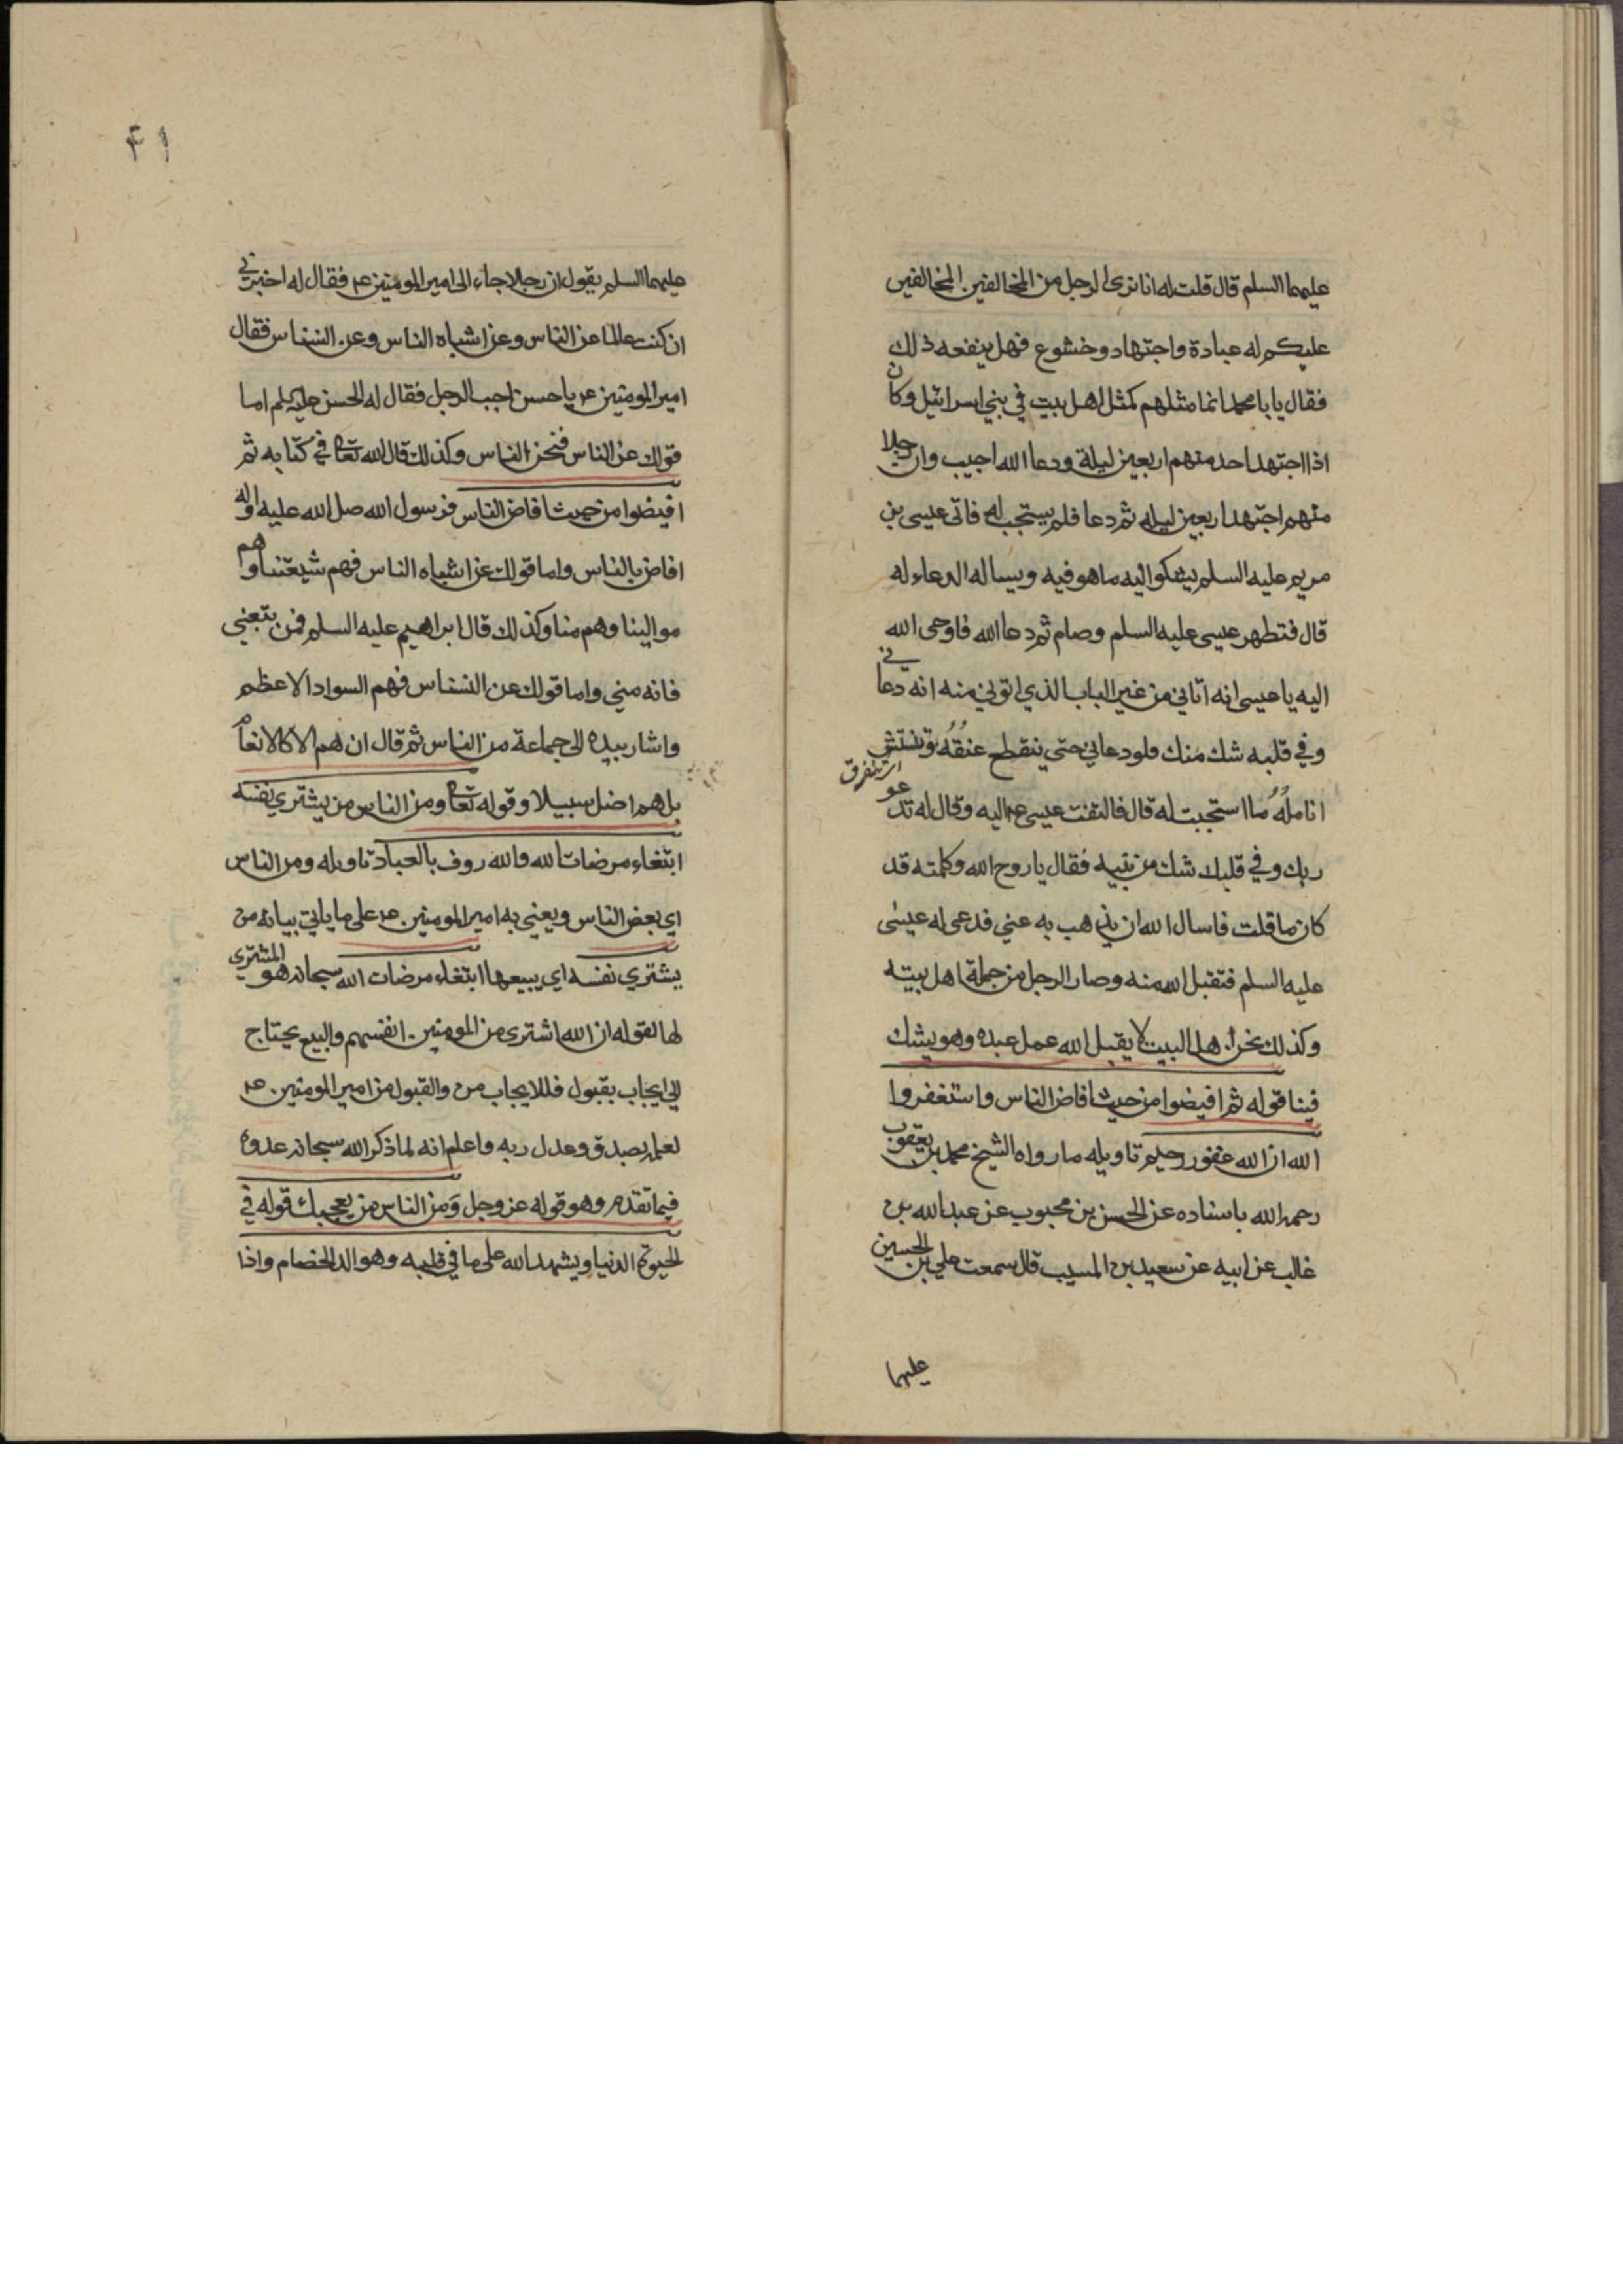 عليهما السلم قال قلت له انا نرى الرجل من المخالفين المخالفين
عليكم له عبادة واجتهاد وخشوع فهل ينفعه ذلك
فقال يا با محمد انما مثلهم كمثل اهل بيت في بني اسرائيل وكان
اذا اجتهد احد منهم اربعين ليلة ودعا الله اجيب وان رجلا
منهم اجتهد اربعين ليله ثم دعا فلم يستجب له فاتى عيسى بن
مريم عليه السلم يشكوا اليه ما هو فيه ويساله الدعاء له
قال فتطهر عيسى عليه السلم وصام ثم دعا الله فاوحى الله
اليه يا عيسى انه اتاني من غير الباب الذي اوتى منه انه دعاني
وفي قلبه شك منك فلو دعاني حتى ينقطع عنقه وتنتشر
اي تتفرق
انامله ما استجبت له قال فالتفت عيسى ع اليه وقال له تدعو
ربك وفي قلبك شك من نبيه فقال يا روح الله وكلمته قد
كان ما قلت فاسال الله ان يذهب به عني فدعى له عيسى
عليه السلم فتقبل الله منه وصار الرجل من جملة اهل بيته
وكذلك نحن اهل البيت لا يقبل الله عمل عبده وهو يشك
فينا قوله ثم افيضوا من حيث افاض الناس واستغفروا
الله ان الله غفور رحيم تاويله ما رواه الشيخ محمد بن يعقوب
رحمه الله باسناده عن الحسن بن محبوب عن عبد الله بن
غالب عن ابيه عن سعيد بن المسيب قال سمعت علي بن الحسين
عليهما
۴۱
عليهما السلم يقول ان رجلا جاء الى امير المومنين ع م فقال له اخبرني
ان كنت عالما عن الناس وعن اشباه الناس وعن النسناس فقال
امير المومنين ع م يا حسن اجب الرجل فقال له الحسن عليه السلم اما
قولك عن الناس فنحن الناس وكذلك قال الله تعا في كتابه ثم
افيضوا من حيث افاض الناس فرسول الله صل الله عليه واله
افاض بالناس واما قولك عن اشباه الناس فهم شيعتنا وهم
موالينا وهم منا وكذلك قال ابراهيم عليه السلم فمن تبعني
فانه مني واما قولك عن النسناس فهم السواد الاعظم
واشار بيده الى جماعة من الناس ثم قال ان هم الا كالانعام
بل هم اضل سبيلا وقوله تعا ومن الناس من يشتري نفسه
ابتغاء مرضات الله والله روف بالعباد تاويله ومن الناس
اي بعض الناس ويعني به امير المومنين ع م على ما ياتي بيانه من
يشتري نفسه اي يبيعها ابتغاء مرضات الله سبحانه هو المشتري
لها لقوله ان الله اشترى من المومنين انفسهم والبيع يحتاج
الى ايجاب بقبول فللايجاب من والقبول من امير المومنين ع م
لعلمه بصدق وعدل ربه واعلم انه لما ذكر الله سبحانه عدوه
فيما تقدم وهو قوله عز وجل ومن الناس من يعجبك قوله في
الحيوة الدنيا ويشهد الله على ما في قلبه وهو الد الخصام واذا